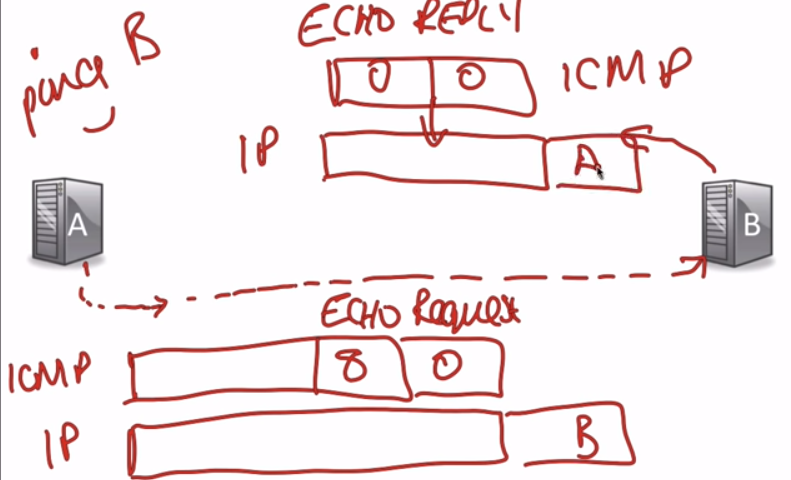 ping B
ECHO REPLY
0 0 ICMP
IP A
A
B
ECHO Request
ICMP 8 0
IP B